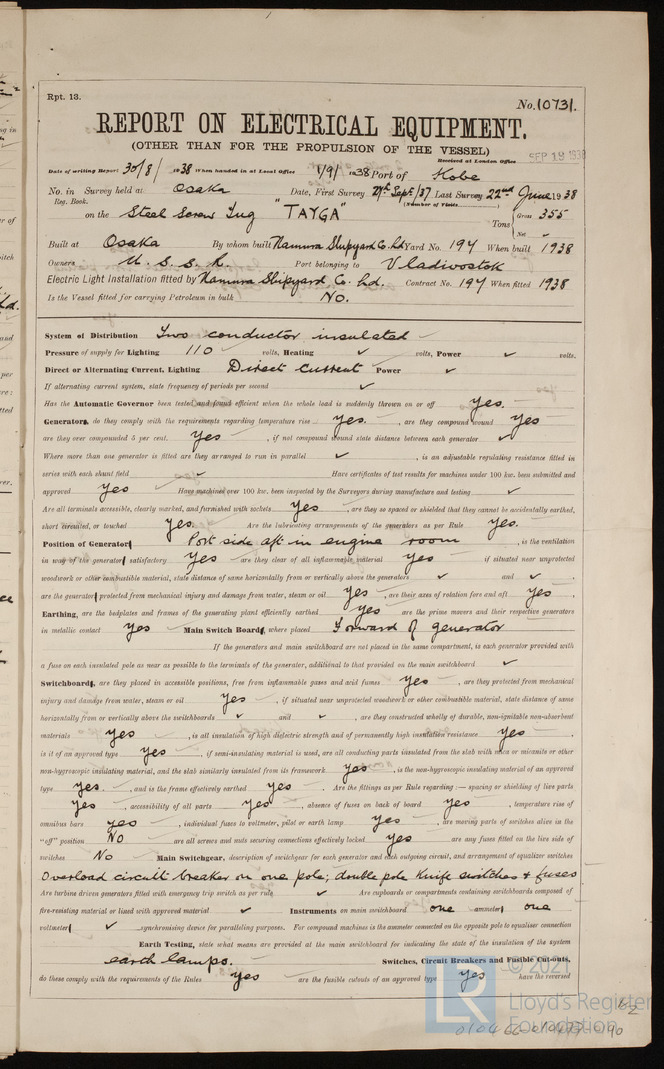 Rpt. 13.
No. 10731.
REPORT ON ELECTRICAL EQUIPMENT.
(OTHER THAN FOR THE PROPULSION OF THE VESSEL)
Received at London Office SEP 19 1938
Date of writing Report 30/8/1938 When handed in at Local Office 1/9/1938 Port of Kobe
No. in Survey held at Osaka Date, First Survey Sept/37 Last Survey 22nd June 1938
Reg. Book. (Number of Visits
on the Steel Screw Tug "TAYGA" Tons { Gross 355
Net -
Built at Osaka By whom built Namura Shipyard Co. Ld Yard No. 194 When built 1938
Owners U.S.S.R. Port belonging to Vladivostok
Electric Light Installation fitted by Namura Shipyard Co. Ld. Contract No. 194 When fitted 1938
Is the Vessel fitted for carrying Petroleum in bulk No.
System of Distribution Two conductor insulated
Pressure of supply for Lighting 110 volts, Heating ✓ volts, Power ✓ volts.
Direct or Alternating Current, Lighting Direct Current Power ✓
If alternating current system, state frequency of periods per second ✓
Has the Automatic Governor been tested and found efficient when the whole load is suddenly thrown on or off yes.
Generators, do they comply with the requirements regarding temperature rise yes. , are they compound wound yes
are they over compounded 5 per cent. yes , if not compound wound state distance between each generator ✓
Where more than one generator is fitted are they arranged to run in parallel ✓ , is an adjustable regulating resistance fitted in
series with each shunt field ✓ Have certificates of test results for machines under 100 kw. been submitted and
approved yes Have machines over 100 kw. been inspected by the Surveyors during manufacture and testing ✓
Are all terminals accessible, clearly marked, and furnished with sockets yes , are they so spaced or shielded that they cannot be accidentally earthed,
short circuited, or touched yes. Are the lubricating arrangements of the generators as per Rule yes.
Position of Generator Port side aft in engine room , is the ventilation
in way of the generator satisfactory yes are they clear of all inflammable material yes if situated near unprotected
woodwork or other combustible material, state distance of same horizontally from or vertically above the generators ✓ and ✓ ,
are the generator protected from mechanical injury and damage from water, steam or oil yes , are their axes of rotation fore and aft yes ,
Earthing, are the bedplates and frames of the generating plant efficiently earthed yes are the prime movers and their respective generators
in metallic contact yes Main Switch Board, where placed Forward of generator
If the generators and main switchboard are not placed in the same compartment, is each generator provided with
a fuse on each insulated pole as near as possible to the terminals of the generator, additional to that provided on the main switchboard ✓
Switchboard, are they placed in accessible positions, free from inflammable gases and acid fumes yes , are they protected from mechanical
injury and damage from water, steam or oil yes , if situated near unprotected woodwork or other combustible material, state distance of same
horizontally from or vertically above the switchboards ✓ and ✓ , are they constructed wholly of durable, non-ignitable non-absorbent
materials yes , is all insulation of high dielectric strength and of permanently high insulation resistance yes ,
is it of an approved type yes , if semi-insulating material is used, are all conducting parts insulated from the slab with mica or micanite or other
non-hygroscopic insulating material, and the slab similarly insulated from its framework yes , is the non-hygroscopic insulating material of an approved
type yes. , and is the frame effectively earthed yes . Are the fittings as per Rule regarding :— spacing or shielding of live parts
yes , accessibility of all parts yes , absence of fuses on back of board yes , temperature rise of
omnibus bars yes , individual fuses to voltmeter, pilot or earth lamp yes , are moving parts of switches alive in the
"off" position No are all screws and nuts securing connections effectively locked yes are any fuses fitted on the live side of
switches No Main Switchgear, description of switchgear for each generator and each outgoing circuit, and arrangement of equalizer switches
Overload circuit breaker on one pole; double pole knife switches & fuses
Are turbine driven generators fitted with emergency trip switch as per rule ✓ Are cupboards or compartments containing switchboards composed of
fire-resisting material or lined with approved material ✓ Instruments on main switchboard one ammeter one
voltmeter ✓ synchronising device for paralleling purposes. For compound machines is the ammeter connected on the opposite pole to equaliser connection
Earth Testing, state what means are provided at the main switchboard for indicating the state of the insulation of the system
earth lamps. Switches, Circuit Breakers and Fusible Cut-outs,
do these comply with the requirements of the Rules yes are the fusible cutouts of an approved type yes have the reversed
LR © 2021
Lloyd's Register
Foundation